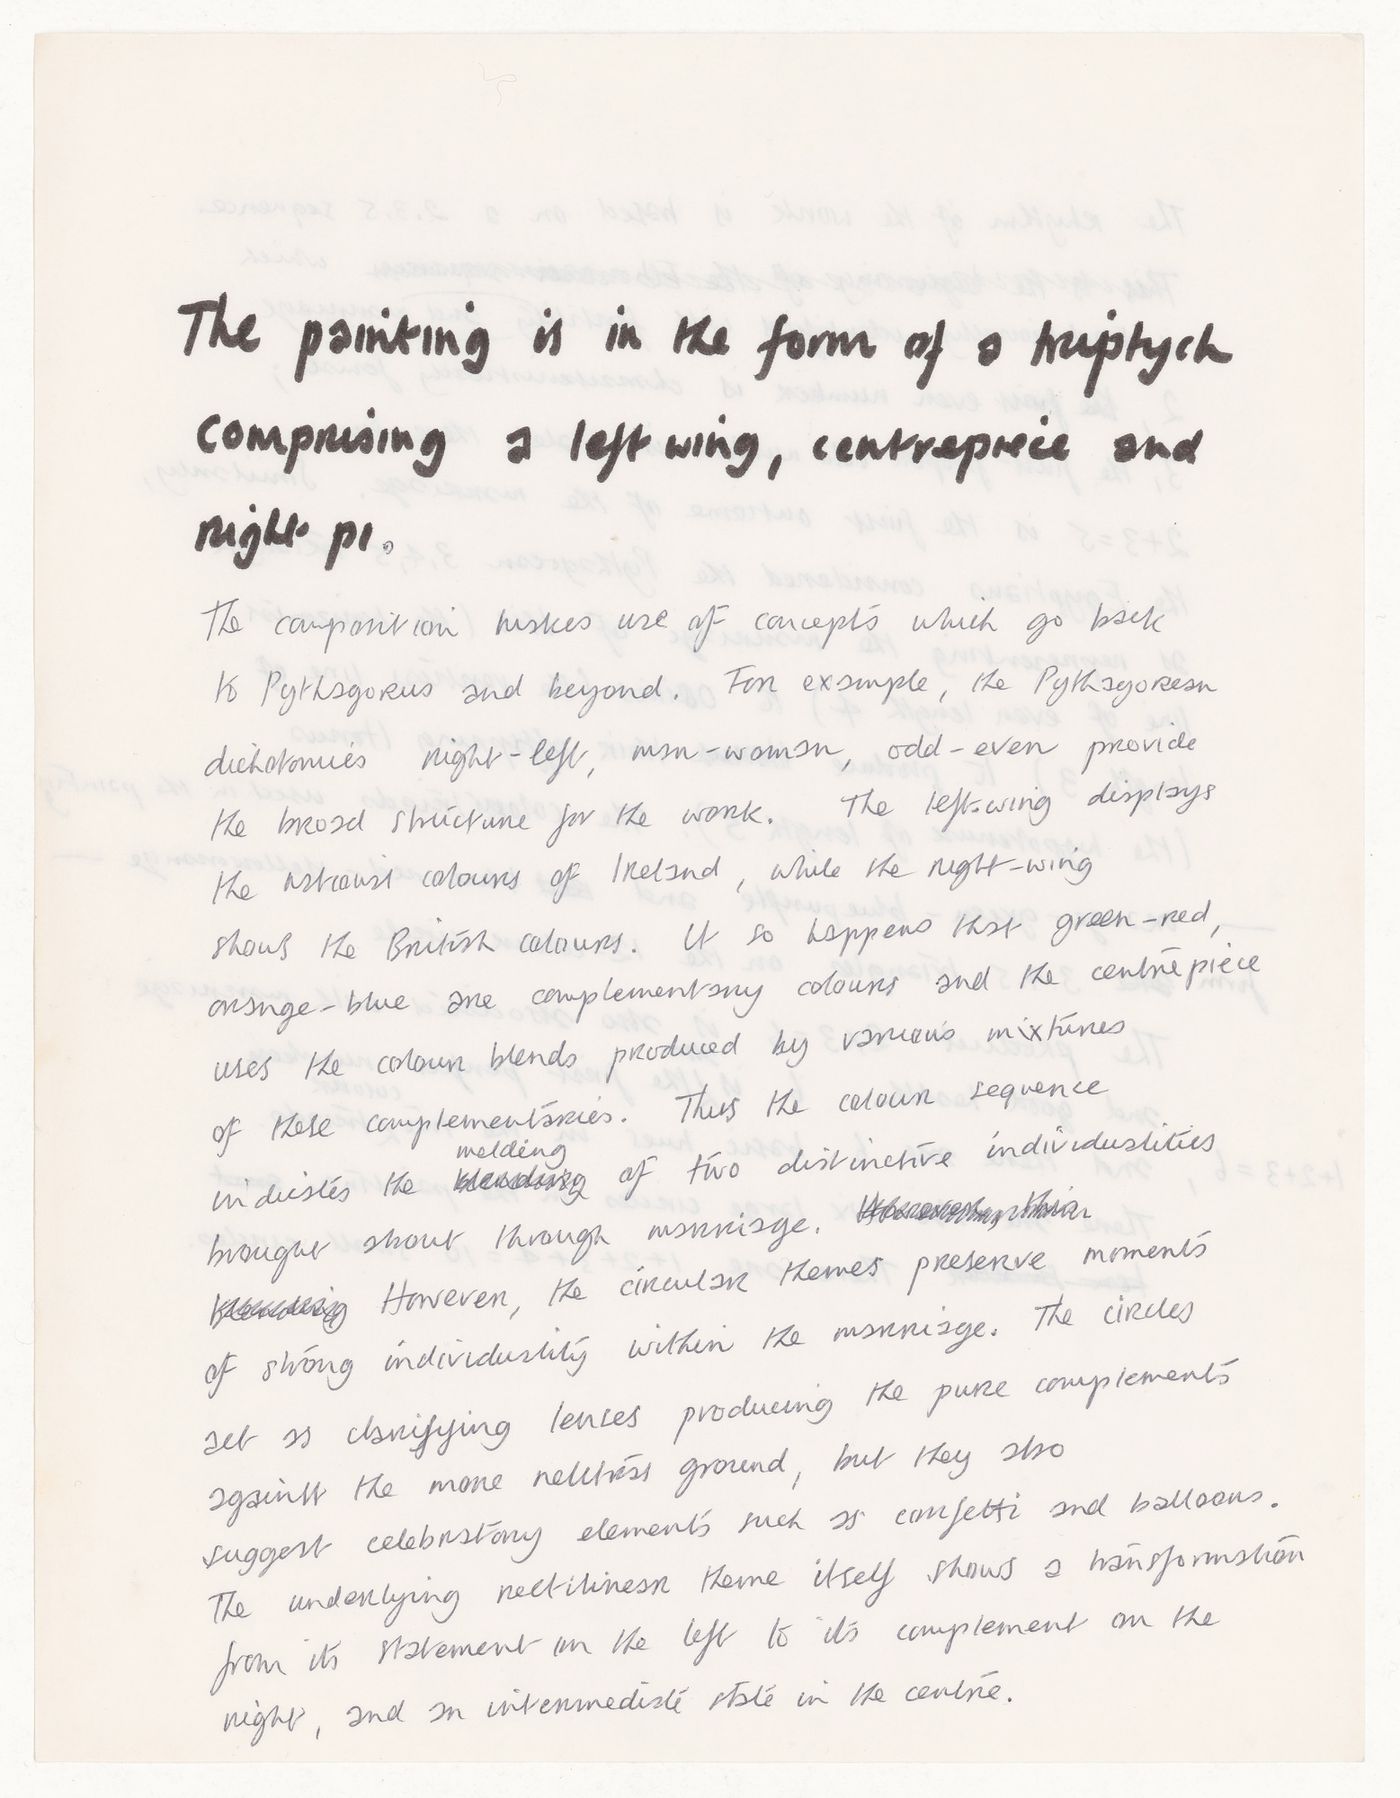 The painting is in the form of a triptych
comprising a left wing, centrepiece and
right pi.
The composition makes use of concepts which go back
to Pythagorus and beyond. For example, the Pythagorean
dichotomies right-left, man-woman, odd-even provide
the broad structure for the work. The left-wing displays
the national colours of Ireland, while the right-wing
shows the British colours. It so happens that green-red,
orange-blue are complementary colours and the centrepiece
uses the colour blends produced by various mixtures
of these complementaries. Thus the colour sequence
melding
indicates the blending of two distinctive individualities
brought about through marriage. However, this
blending However, the circular themes preserve moments
of strong individuality within the marriage. The circles
act as clarifying lenses producing the pure complements
against the more neutral ground, but they also
suggest celebratory elements such as confetti and balloons.
The underlying rectilinear theme itself shows a transformation
from its statement on the left to its complement on the
right, and an intermediate state in the centre.